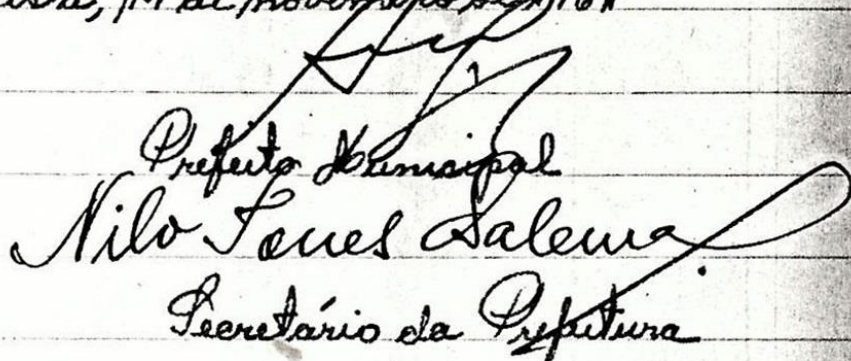 de novembro de
Prefeito Municipal
Nilo Torres Salema
Secretário da Prefeitura